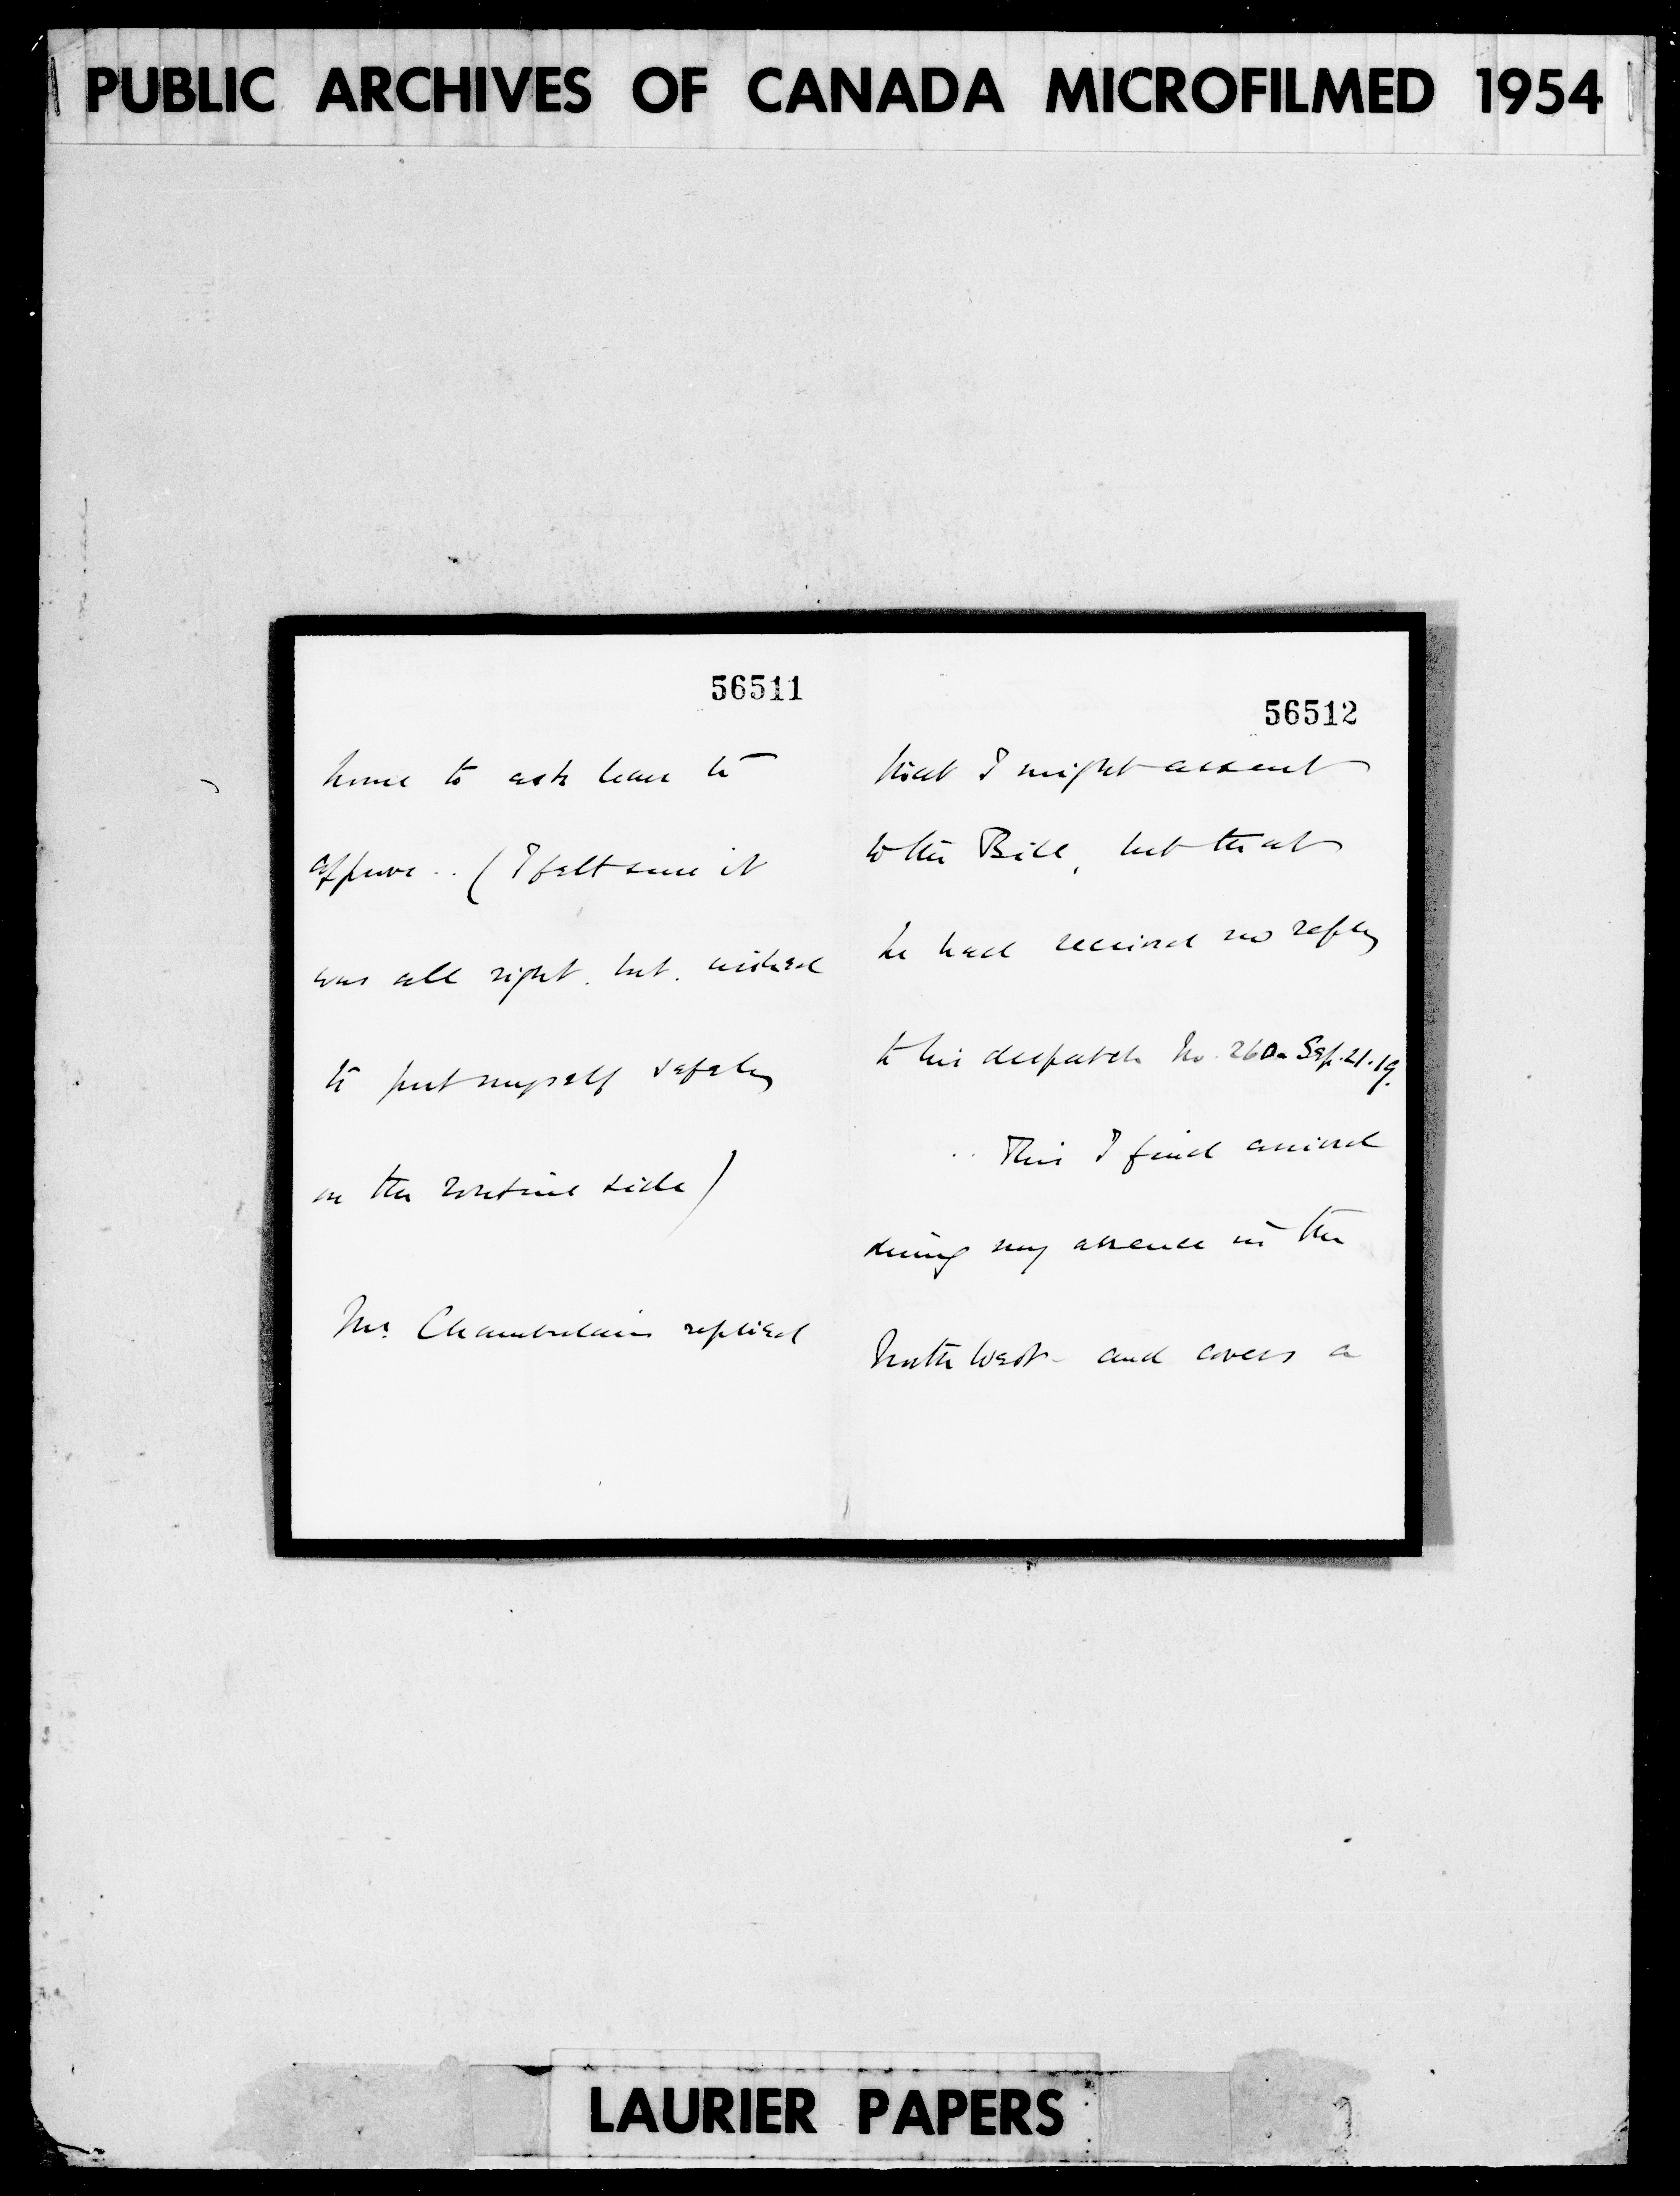 PUBLIC ARCHIVES OF CANADA MICROFILMED 1954
56511
home to ask leave to
approve .. ( I felt sure it
was all right. but. wished
to put myself safely
on the routine side )
Mr. Chamberlain replied
56512
that I might assent
to the Bill, but that
he had received no reply
to his despatch No. 260. Sep. 21. 19.
.. This I find arrived
during my absence in the
North West - and covers a
LAURIER PAPERS